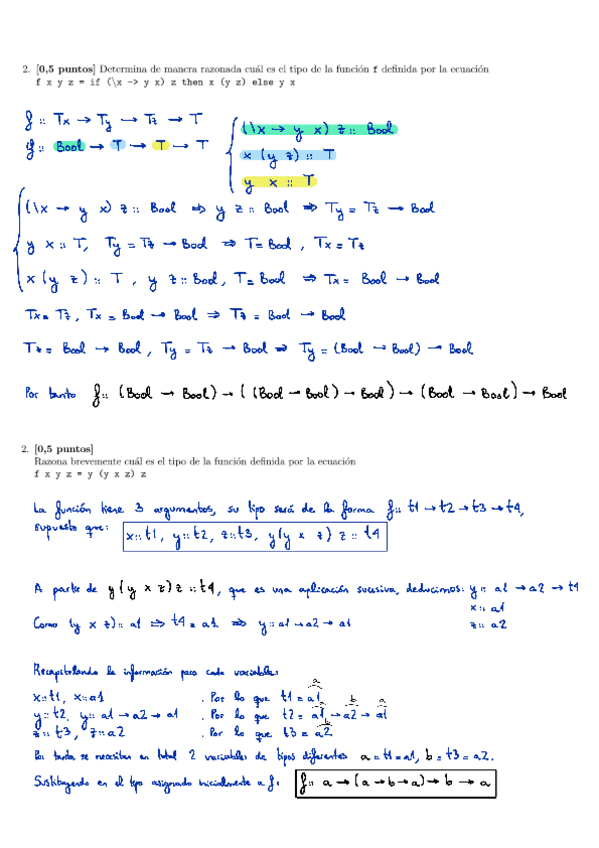 2. [0,5 puntos] Determina de manera razonada cuál es el tipo de la función f definida por la ecuación
f x y z = if (\x -> y x) z then x (y z) else y x
f :: Tx → Ty → Tz → T
f :: Bool → T → T → T
(\x → y x) z :: Bool
x (y z) :: T
y x :: T
(\x → y x) z :: Bool ⇒ y z :: Bool ⇒ Ty = Tz → Bool
y x :: T, Ty = Tz → Bool ⇒ T = Bool , Tx = Tz
x (y z) :: T , y z :: Bool , T = Bool ⇒ Tx = Bool → Bool
Tx = Tz , Tx = Bool → Bool ⇒ Tz = Bool → Bool
Tz = Bool → Bool , Ty = Tz → Bool ⇒ Ty = (Bool → Bool) → Bool
Por tanto f :: (Bool → Bool) → ( (Bool → Bool) → Bool ) → (Bool → Bool) → Bool
2. [0,5 puntos]
Razona brevemente cuál es el tipo de la función definida por la ecuación
f x y z = y (y x z) z
La función tiene 3 argumentos, su tipo será de la forma f :: t1 → t2 → t3 → t4,
supuesto que: x :: t1, y :: t2, z :: t3, y (y x z) z :: t4
A partir de y (y x z) z :: t4, que es una aplicación sucesiva, deducimos: y :: a1 → a2 → t4
x :: a1
Como (y x z) :: a1 ⇒ t4 = a1 ⇒ y :: a1 → a2 → a1
z :: a2
Recapitulando la información para cada variable:
x :: t1, x :: a1 . Por lo que t1 = a1
a
y :: t2, y :: a1 → a2 → a1 . Por lo que t2 = a1 → a2 → a1
a b a
z :: t3, z :: a2 . Por lo que t3 = a2
b
Por tanto se necesitan en total 2 variables de tipos diferentes a = t1 = a1, b = t3 = a2.
Sustituyendo en el tipo asignado inicialmente a f: f :: a → (a → b → a) → b → a